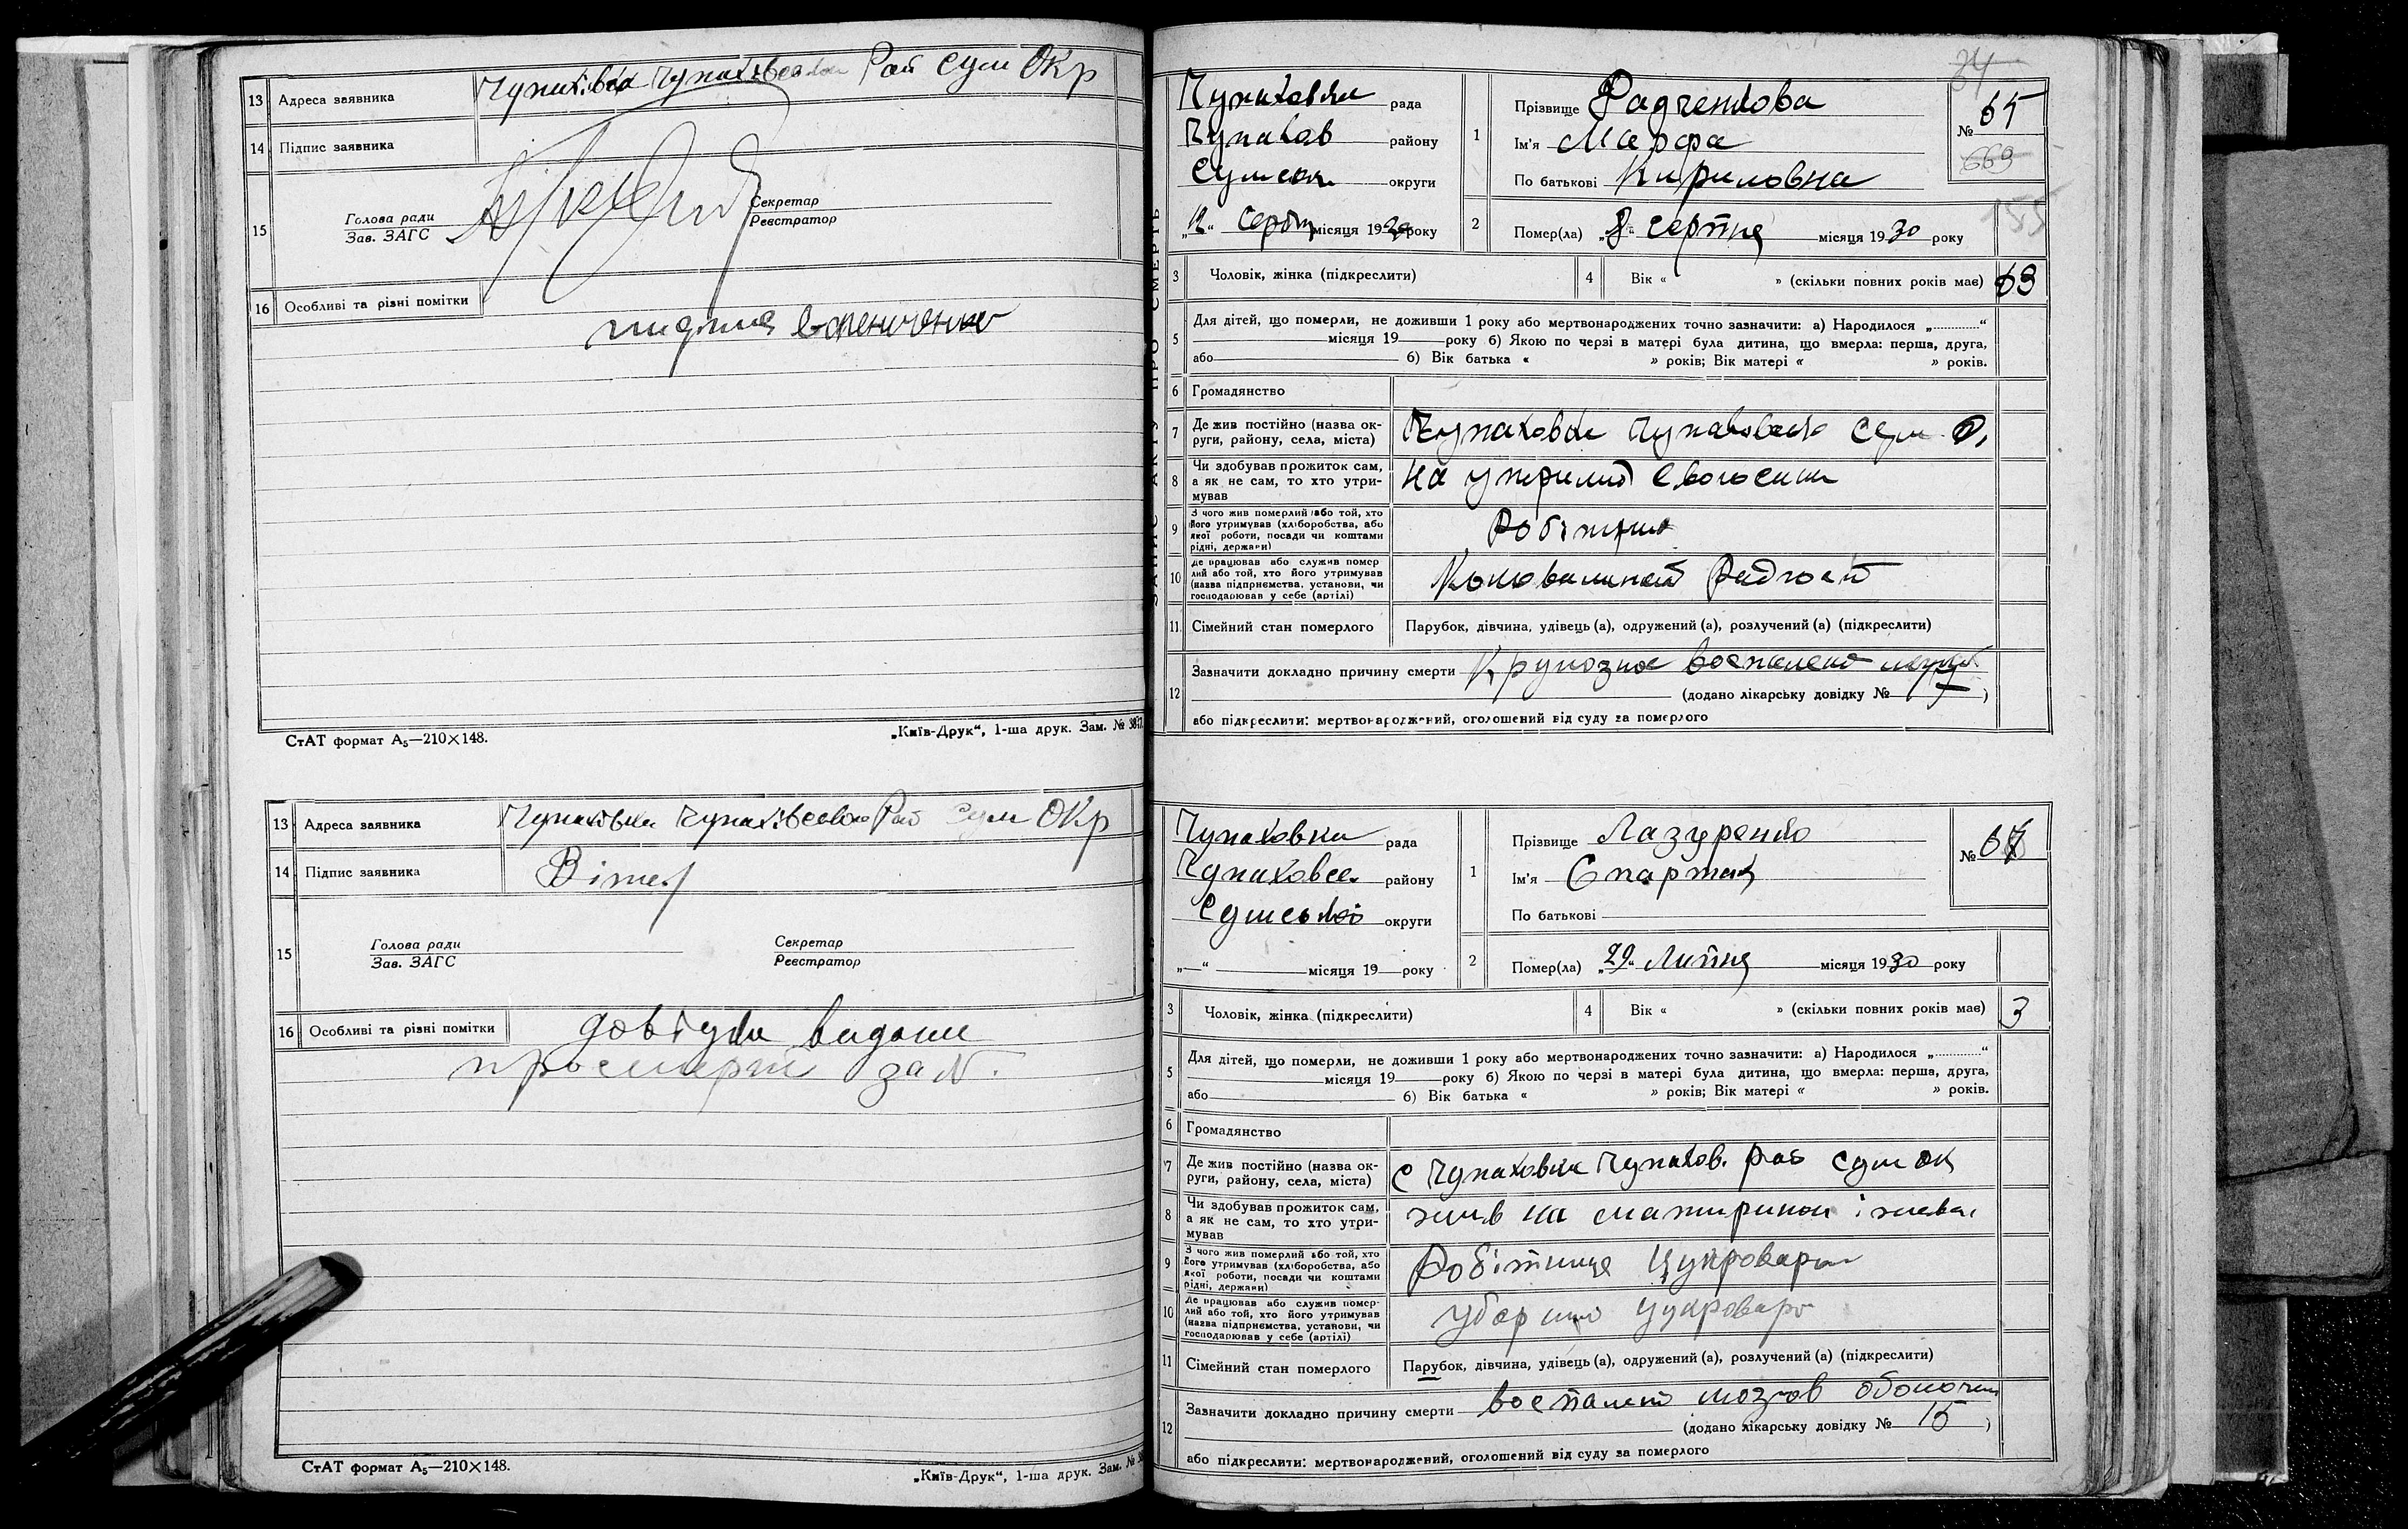 13 Адреса заявника Чупахівка Чупахівсько Рай Сум Окр
14 Підпис заявника
15 Голова ради
Зав. ЗАГС
Секретар
Реєстратор
16 Особливі та різні помітки
СтАТ формат А₅—210×148.
„Київ-Друк“, 1-ша друк. Зам. №
13 Адреса заявника Чупахівка Чупахівсько Рай Сум Окр
14 Підпис заявника
15 Голова ради
Зав. ЗАГС
Секретар
Реєстратор
16 Особливі та різні помітки довідка видана
про смерт за №
СтАТ формат А₅—210×148.
„Київ-Друк“, 1-ша друк. Зам. №
34
Чупаховка рада
Чупахов району
Сумської округи
„12“ Серпня місяця 1930 року
1 Прізвище Радченкова
Ім'я Марфа
По батькові Кириловна
№ 65
669
155
2 Помер(ла) „8“ серпня місяця 1930 року
3 Чоловік, жінка (підкреслити)
4 Вік « » (скільки повних років має) 63
5 Для дітей, що померли, не доживши 1 року або мертвонароджених точно зазначити: а) Народилося „............“
місяця 19 року б) Якою по черзі в матері була дитина, що вмерла: перша, друга,
або б) Вік батька « » років; Вік матері « » років.
6 Громадянство
7 Де жив постійно (назва ок-
руги, району, села, міста) Чупаховка Чупаховсько Сум О.
8 Чи здобував прожиток сам,
а як не сам, то хто утри-
мував на утримані
9 З чого жив померлий або той, хто
його утримував (хліборобства, або
якої роботи, посади чи коштами
рідні, держави)
10 Де працював або служив помер
лий або той, хто його утримував
(назва підприємства, установи, чи
господарював у себе (артілі) Радгосп
11 Сімейний стан померлого Парубок, дівчина, удівець (а), одружений (а), розлучений (а) (підкреслити)
12 Зазначити докладно причину смерти Крупозное воспалено
(додано лікарську довідку № )
або підкреслити: мертвонароджений, оголошений від суду за померлого
ЗАПИС АКТУ ПРО СМЕРТЬ
Чупаховка рада
Чупаховсь. району
Сумської округи
„—“ місяця 19 року
1 Прізвище Лазуренко
Ім'я Спартак
По батькові
№ 67
2 Помер(ла) „29“ Липня місяця 1930 року
3 Чоловік, жінка (підкреслити)
4 Вік « » (скільки повних років має) 3
5 Для дітей, що померли, не доживши 1 року або мертвонароджених точно зазначити: а) Народилося „............“
місяця 19 року б) Якою по черзі в матері була дитина, що вмерла: перша, друга,
або б) Вік батька « » років; Вік матері « » років.
6 Громадянство
7 Де жив постійно (назва ок-
руги, району, села, міста) С Чупаховка Чупахов. рай Сум ок
8 Чи здобував прожиток сам,
а як не сам, то хто утри-
мував жив на
9 З чого жив померлий або той, хто
його утримував (хліборобства, або
якої роботи, посади чи коштами
рідні, держави) Робітниця Цукроварн
10 Де працював або служив помер-
лий або той, хто його утримував
(назва підприємства, установи, чи
господарював у себе (артілі) цукроваро
11 Сімейний стан померлого Парубок, дівчина, удівець (а), одружений (а), розлучений (а) (підкреслити)
12 Зазначити докладно причину смерти воспалено мозгов оболочки
(додано лікарську довідку № 15 )
або підкреслити: мертвонароджений, оголошений від суду за померлого